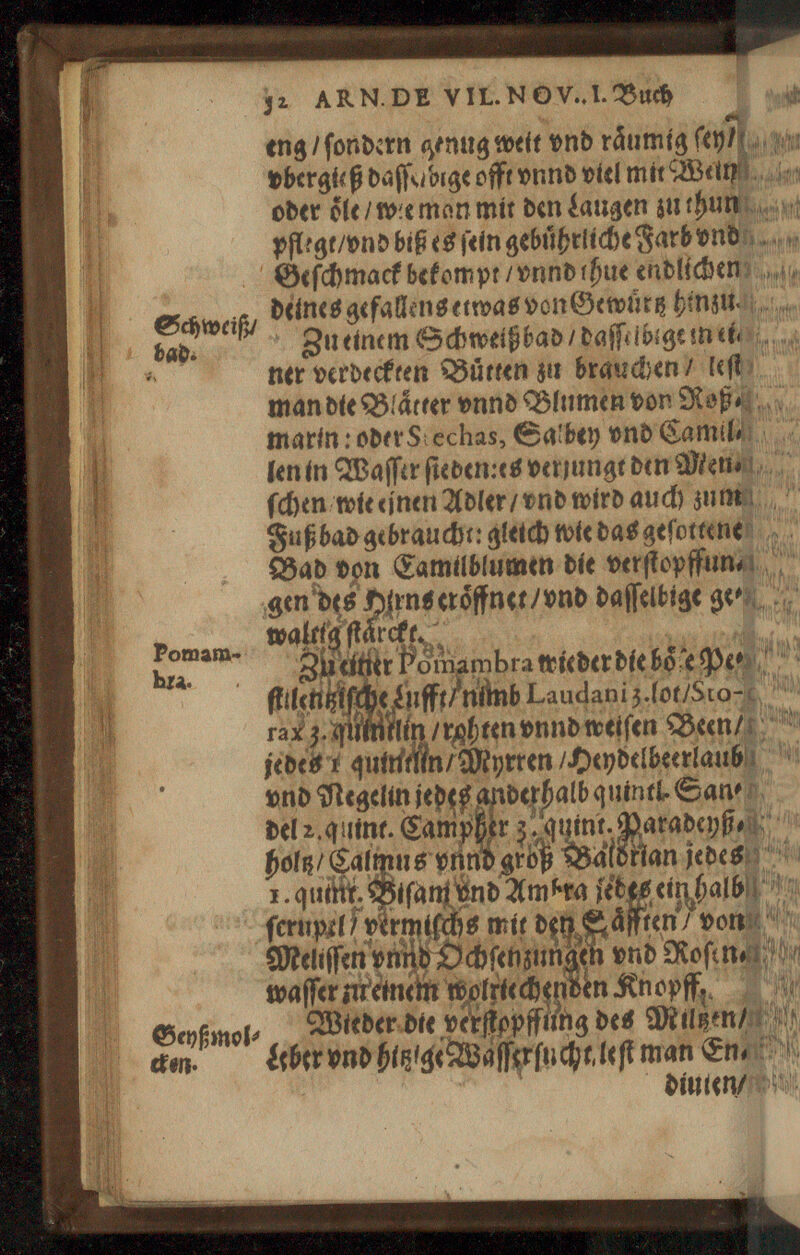 32 ARN. DE VIL. NOV.. I. Buch
eng / ſondern genug weit vnd raͤumig ſey /
vbergieß daſſelbige offt vnnd viel mit Wein
oder oͤle / wie man mit den Laugen zu thun
pflegt / vnd biß es ſein gebuͤhrliche Farb vnd
Geſchmack bekompt / vnnd thue endlichen
deines gefallens etwas von Gewuͤrtz hinzu.
Schweiß/
bad.
Zu einem Schweißbad / daſſelbige in ei-
ner verdeckten Buͤtten zu brauchen / leſt
man die Blaͤtter vnnd Blumen von Roß-
marin: oder Stechas, Salbey vnd Camil-
len in Waſſer ſieden: es verjungt den Men-
ſchen wie ejnen Adler / vnd wird auch zum
Fußbad gebraucht: gleich wie das geſottene
Bad von Camilblumen die verſtopffun-
gen des Hirns eroͤffnet / vnd daſſelbige ge-
waltig ſtaͤrckt.
Pomam-
bra.
Zu einer Pomambra wieder die boͤſe Pe-
ſtilentziſche Lufft / nimb Laudani 3. lot / Sto-
rax 3. quintlin / rohten vnnd weiſen Been /
jedes 1 quintlin / Myrren / Heydelbeerlaub
vnd Negelin jedes anderhalb quintl. San-
del 2. quint. Campher 3. quint. Paradeyß-
holtz / Calmus vnnd groß Baldrian jedes
1. quint. Biſam vnd Ambra jedes ein halb
ſcrupel / vermiſchs mit den Saͤfften / von
Meliſſen vnnd Ochſenzungen vnd Roſen-
waſſer zu einem wolriechenden Knopff.
Geyßmol-
cken.
Wieder die verſtopffung des Miltzen /
Leber vnd hitzige Waſſerſucht, leſt man En-
diuien /